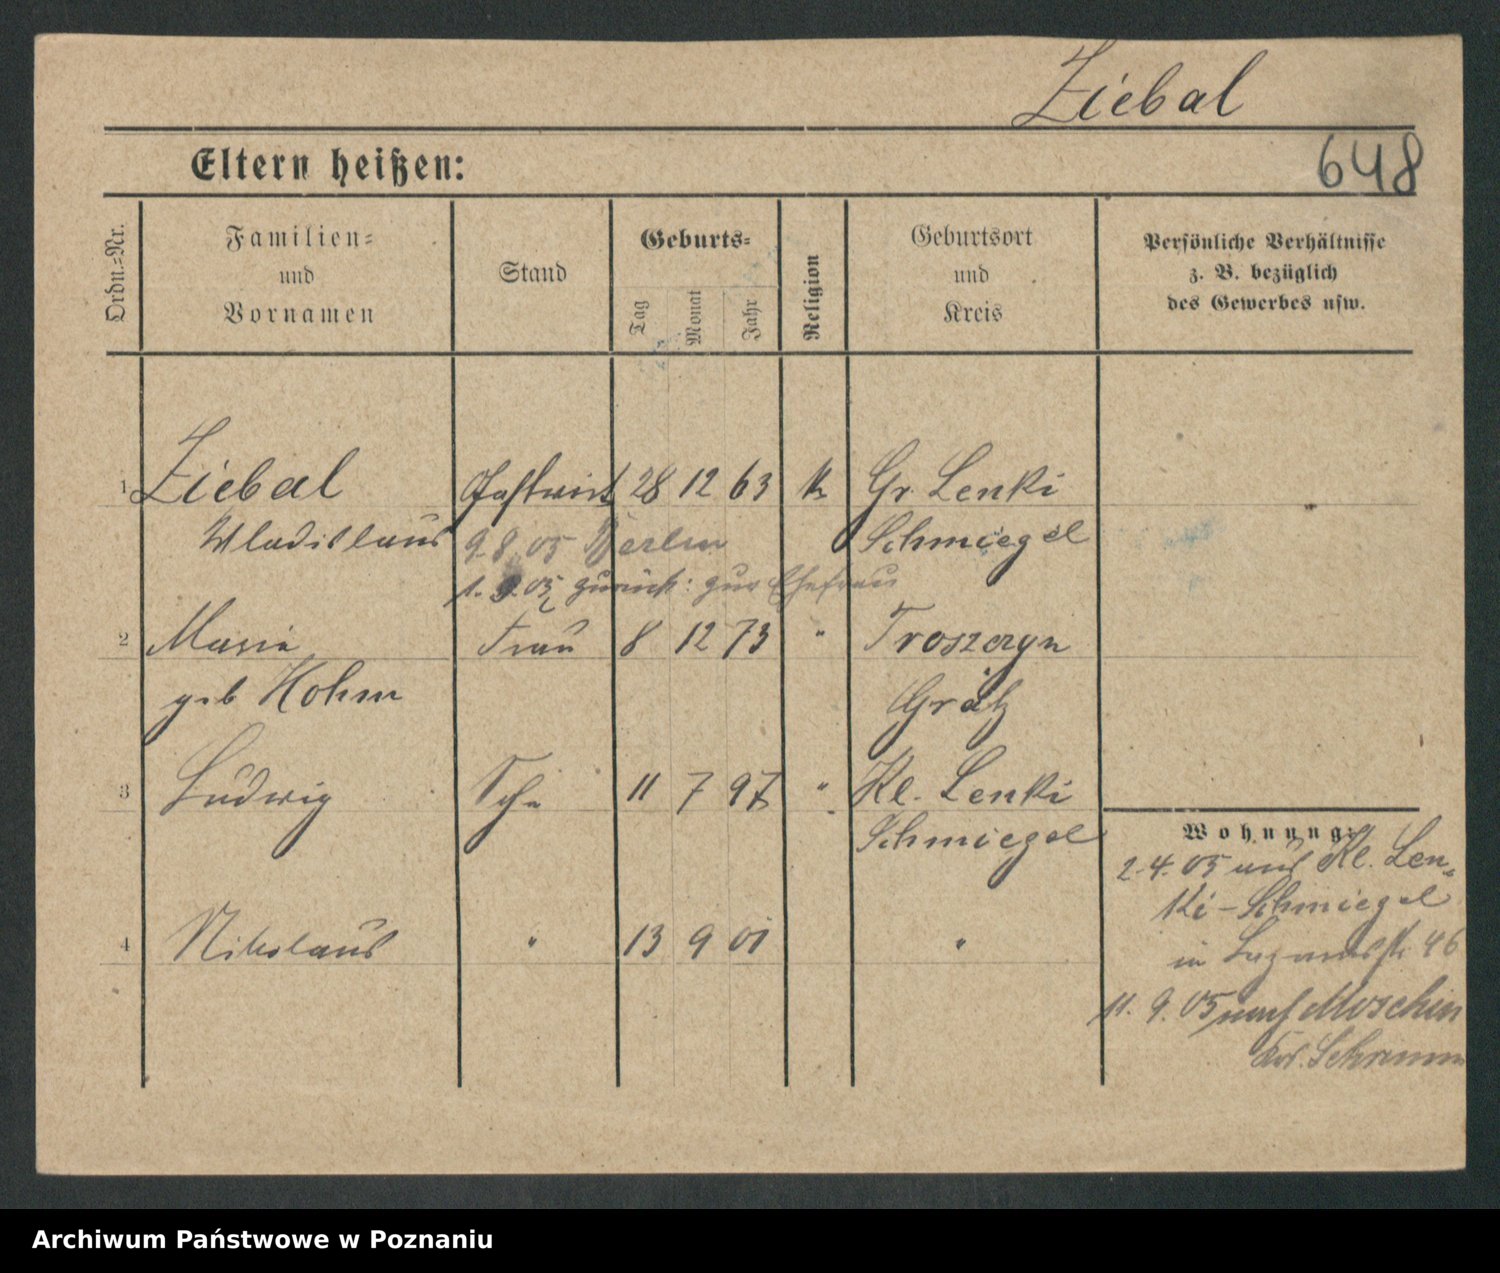 Ziebal
Eltern heißen:
648
Ordn.-Nr.
Familien-
und
Vornamen
Stand
Geburts-
Tag
Monat
Jahr
Religion
Geburtsort
und
Kreis
Persönliche Verhältnisse
z. B. bezüglich
des Gewerbes usw.
1 Ziebal Gastwirt 28 12 63 k Gr. Lenki
Wladislaus Schmiegel
9.8.05 Berlin
1.9.05 zurück: zur Ehefrau
2 Maria Frau 8 12 73 " Troszczyn
geb Hohm Grätz
3 Ludwig Sohn 11 7 97 " Kl. Lenki
Schmiegel
4 Nikolaus " 13 9 01 "
Wohnung:
2.4.05 aus Kl. Len-
ki-Schmiegel
in 46
11.9.05 nach Moschin
Kr. Schrimm
Archiwum Państwowe w Poznaniu